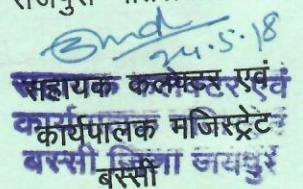 24.5.18
सहायक कलेक्टर एवं
कार्यपालक मजिस्ट्रेट
बस्सी जिला जयपुर
बस्सी